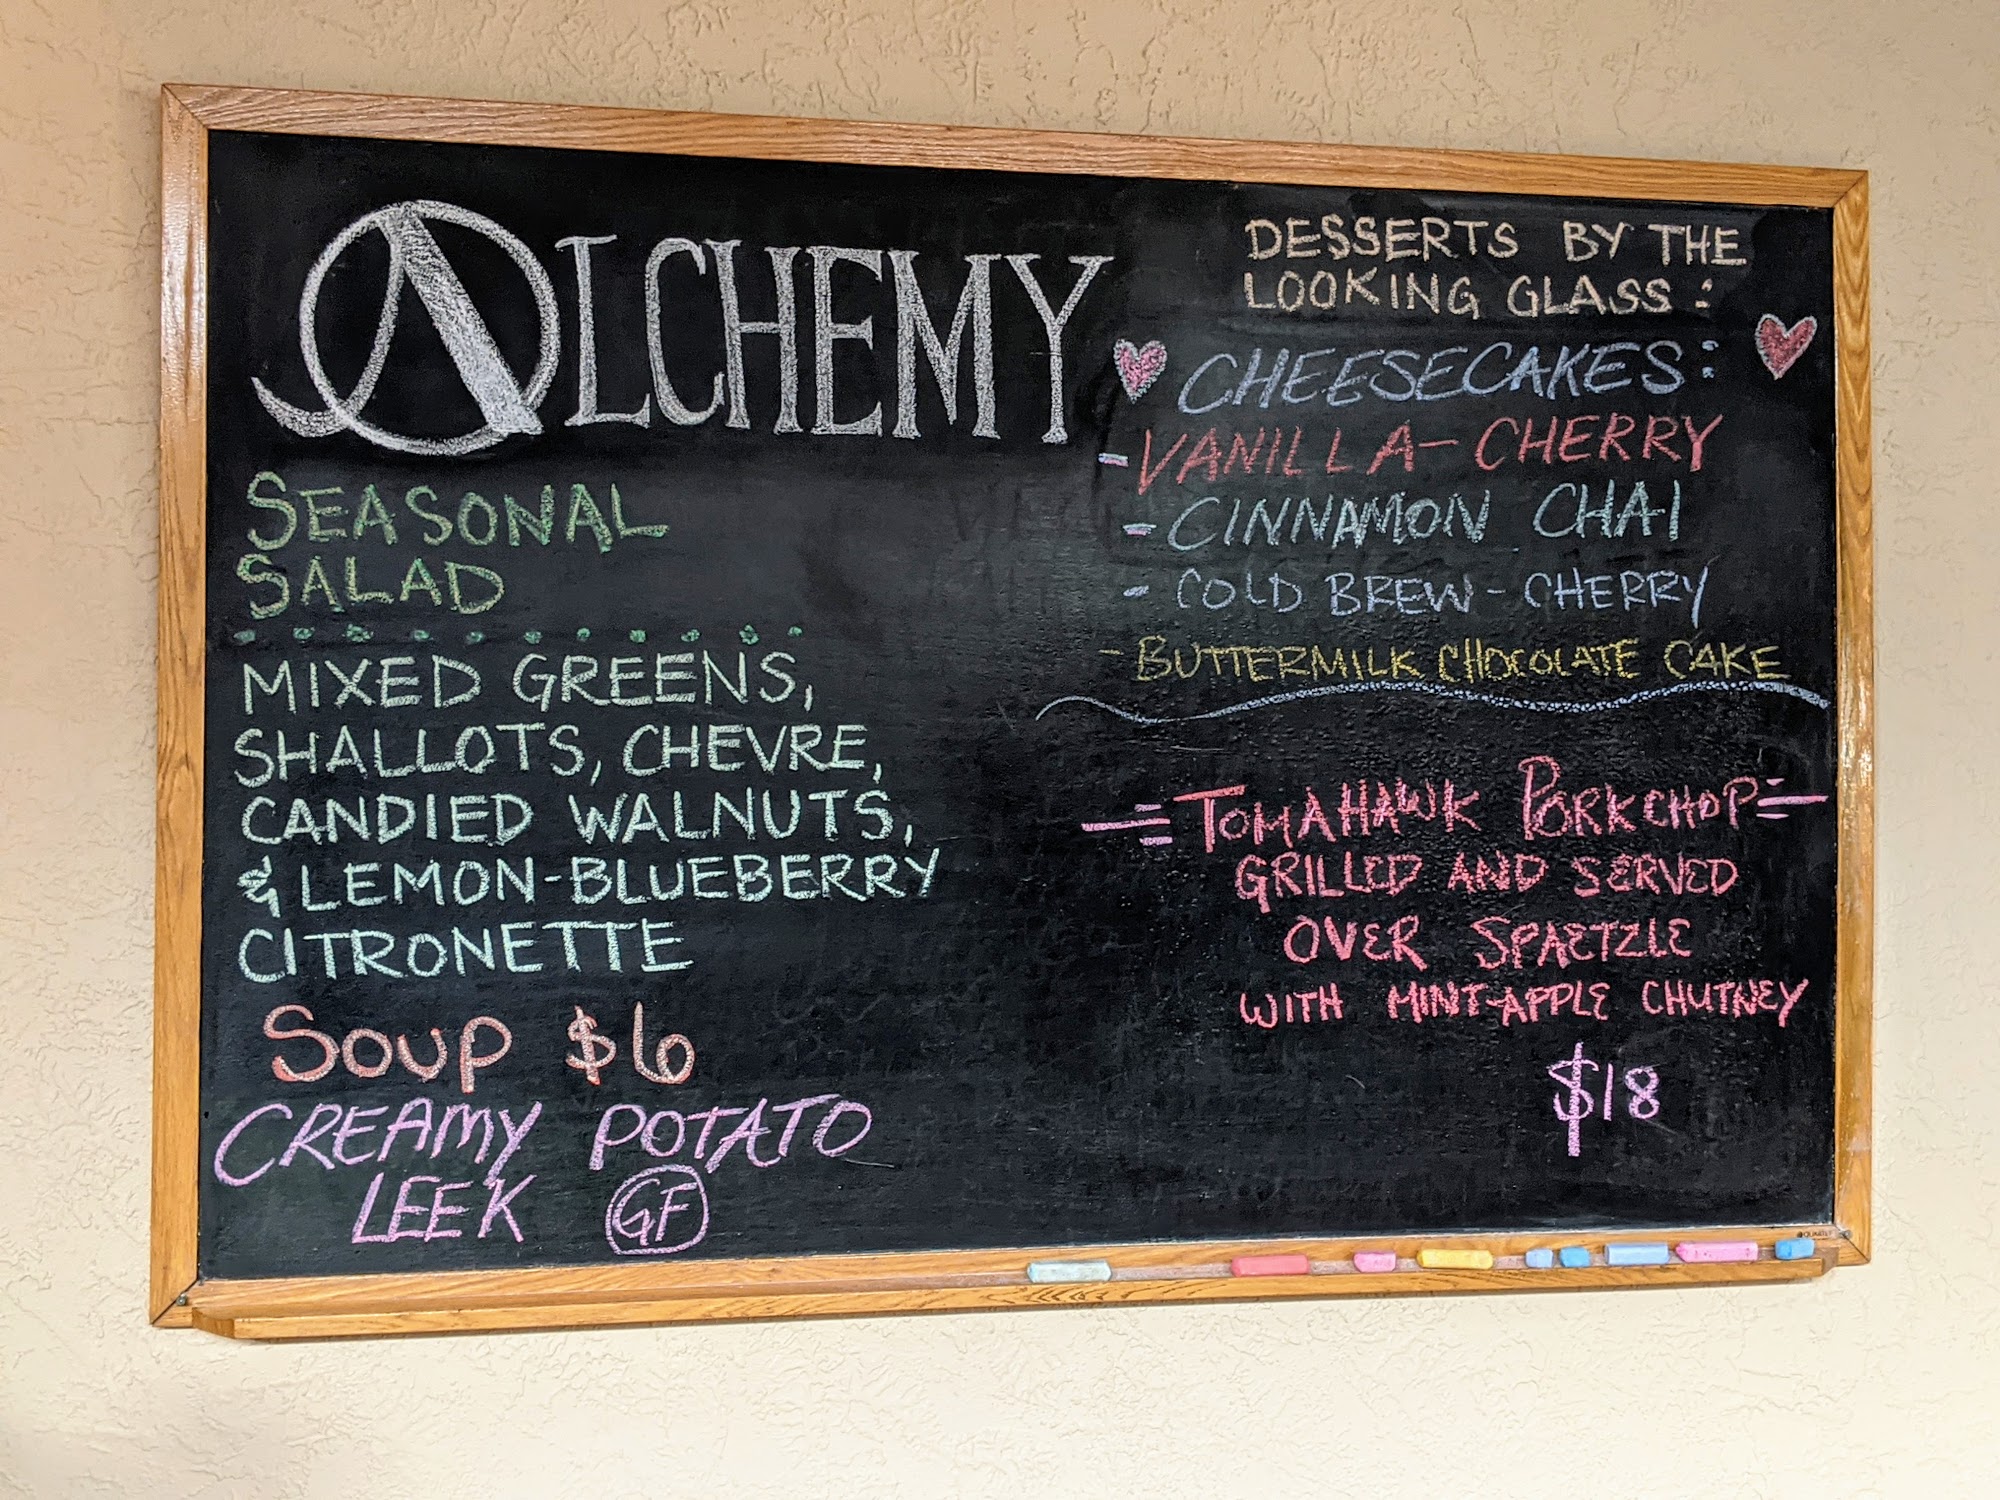 ALCHEMY
SEASONAL
SALAD
MIXED GREENS,
SHALLOTS, CHEVRE,
CANDIED WALNUTS,
& LEMON-BLUEBERRY
CITRONETTE
SOUP $6
CREAMY POTATO
LEEK GF
DESSERTS BY THE
LOOKING GLASS:
CHEESECAKES:
- VANILLA-CHERRY
- CINNAMON CHAI
- COLD BREW-CHERRY
- BUTTERMILK CHOCOLATE CAKE
TOMAHAWK PORKCHOP
GRILLED AND SERVED
OVER SPAETZLE
WITH MINT-APPLE CHUTNEY
$18